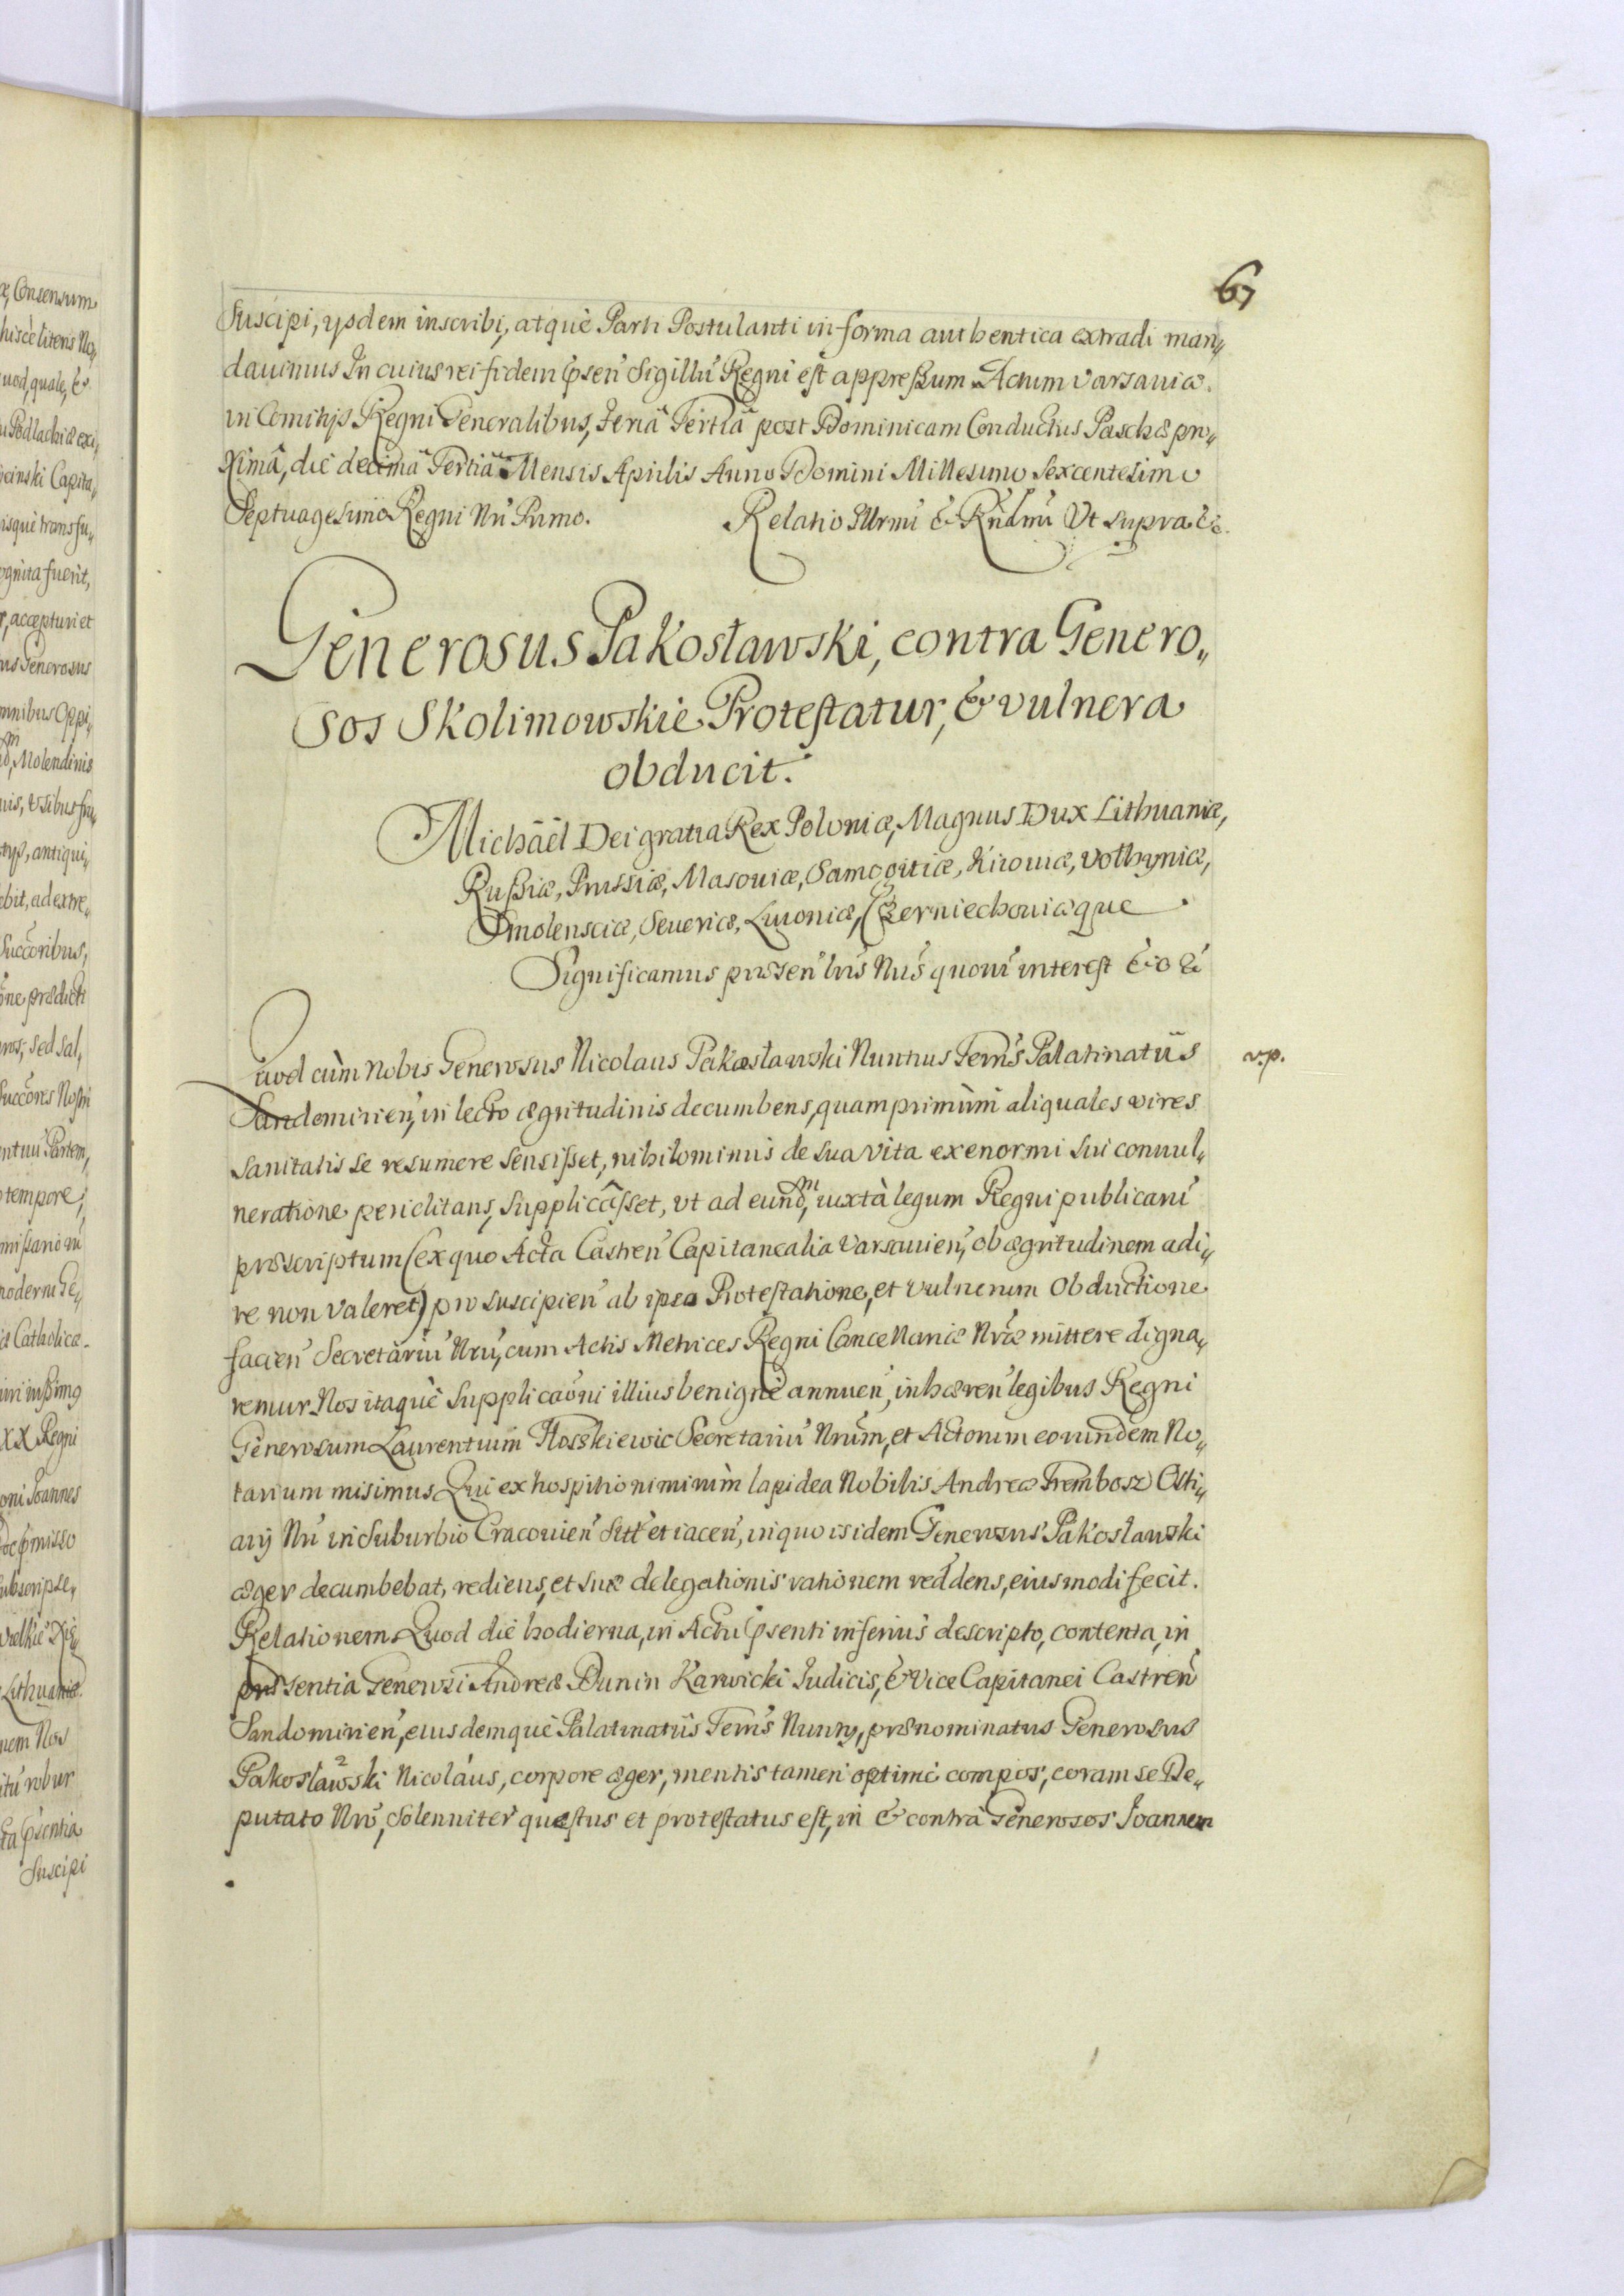 67
Suscipi, ysdem inscribi, atquè Parti Postulanti in forma authentica extradi man„
dauimus In cuius rei fidem p̄sen̄ Sigillū Regni est appreßum. Actum Varsauiæ.
in Comitijs Regni Generalibus, Feriâ Tertiâ post Dominicam Conductus Paschæ pro„
ximâ, die decimâ Tertiâ Mensis Aprilis Anno Domini Millesimo Sexcentesimo
Septuagesimo Regni Nr̄i Primo. Relatio Illrmi & Rn̄dmi Vt supra &c.
Generosus Pakosławski, contra Genero„
sos Skolimowskie Protestatur, & vulnera
obducit.
Michäel Dei gratia Rex Poloniæ, Magnus Dux Lithuaniæ,
Rußiæ, Prussiæ, Masouiæ, Samogitiæ, Kiiouiæ, Volhyniæ,
Smolensciæ, Seueriæ, Liuoniæ, Czerniechouiæque
Significamus præsen̄ lr̄is Nr̄is quorū interest &c &
Quod cùm Nobis Generosus Nicolaus Pakosławski Nuntius Terrīs Palatinatûs
v.p.
Sandomirien̄, in lecto ægritudinis decumbens, quamprimùm aliquales vires
sanitatis se resumere sensisset, nihilominus de sua vita ex enormi sui conuul„
neratione periclitans, supplicâsset, vt ad eund,m iuxtà legum Regni publicarū
præscriptum (ex quo Acta Castren̄ Capitanealia Varsauien̄, ob ægritudinem adi„
re non valeret) pro suscipien̄ ab ipso Protestatione, et Vulnerum Obductione
facien̄ Secretariū Nr̄ū, cum Actis Metrices Regni Cancellariæ Nr̄æ mittere digna„
remur. Nos itaquè Supplicaōni illius benignè annuen̄, inhæren̄ legibus Regni
Generosum Laurentium Hosskiewic Secretariū Nr̄um, et Actorum eorundem No„
tarium misimus Qui ex hospitio nimirùm lapidea Nobilis Andreæ Trembosz Osti„
arij Nr̄i in Suburbio Cracouien̄ Sitt̄ et iacen̄, in quo is idem Generosus Pakosławski
æger decumbebat, rediens, et suæ delegationis rationem reddens, eiusmodi fecit.
Relationem Quod die hodierna, in Actu p̄senti inferius descripto, contenta, in
præsentia Generosi Andreæ Dunin Karwicki Iudicis, & Vice Capitanei Castren̄
Sandomirien̄, eiusdemquè Palatinatûs Terrīs Nuntij, prænominatus Generosus
Pakosławski Nicolaus, corpore æger, mentis tamen optimè compos, coram se De„
putato Nr̄o, Solenniter questus et protestatus est, in & contrà Generosos Ioannem